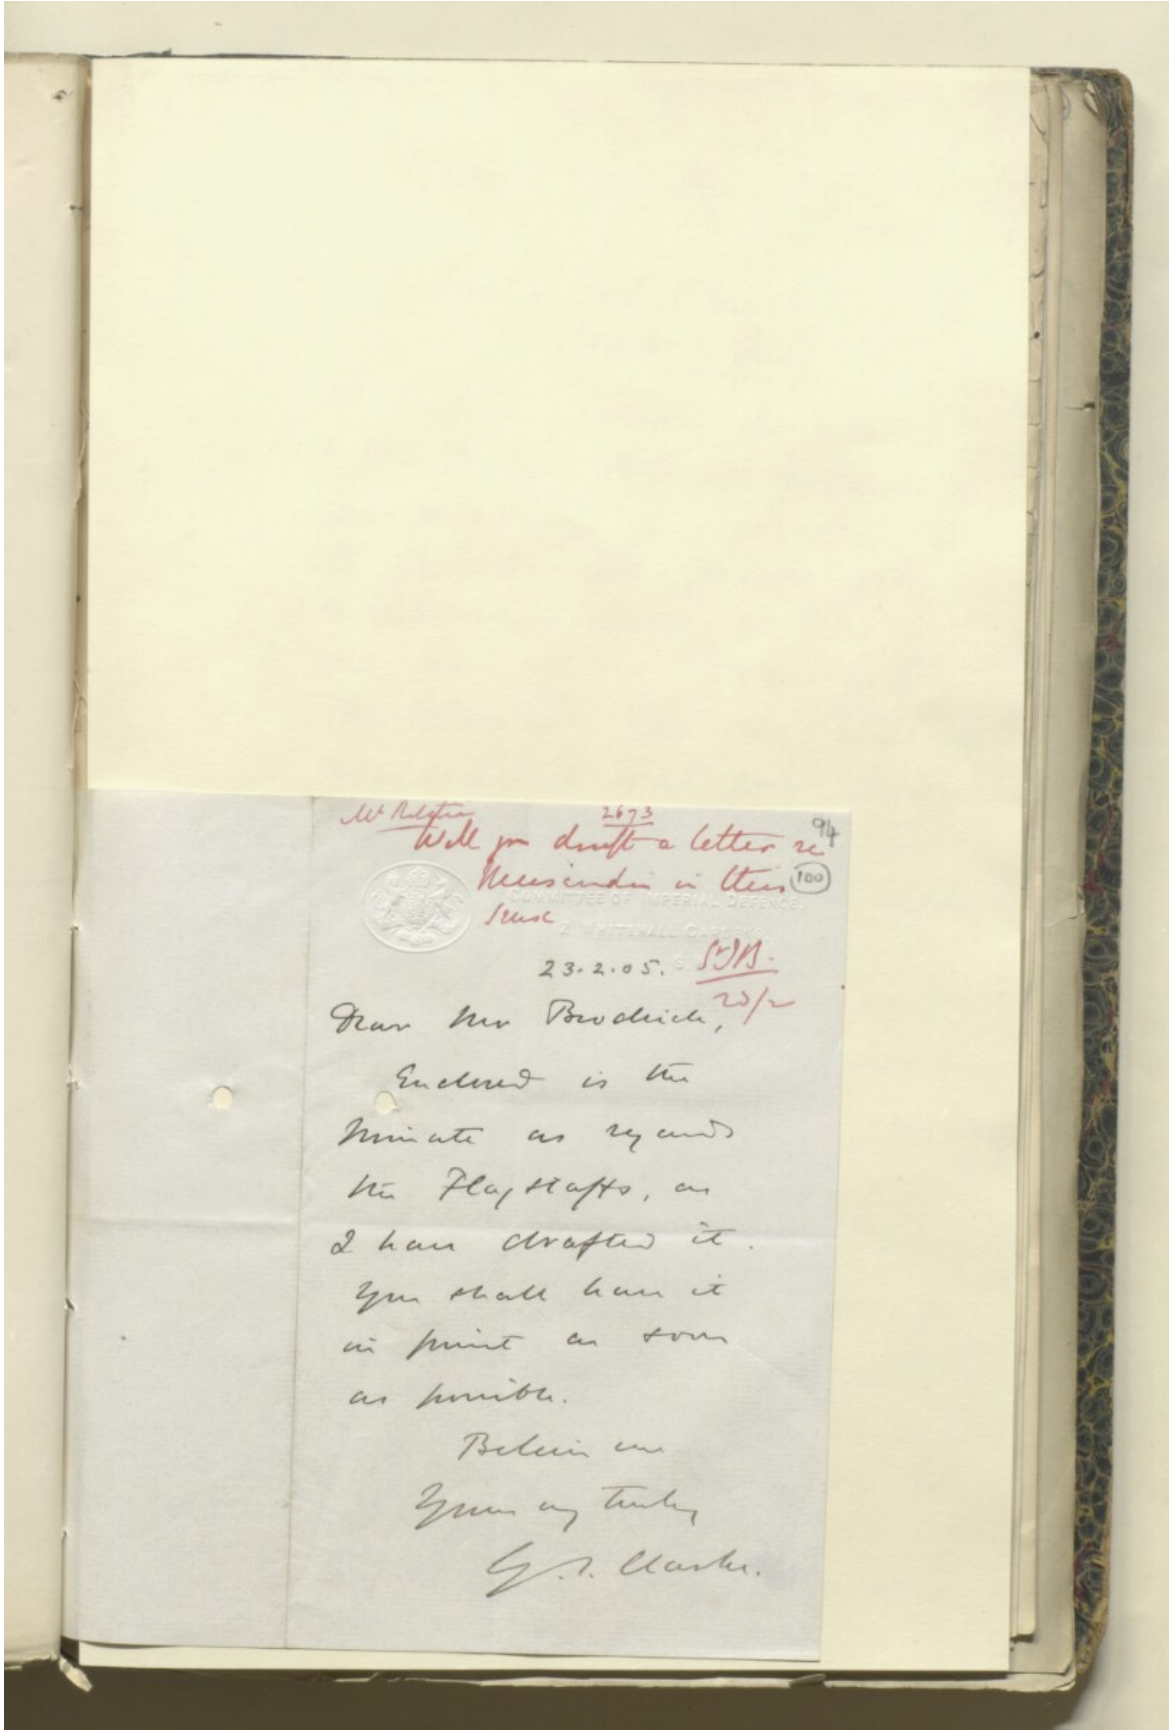 Mr Ritchie
2673
94
Will you draft a letter re
Mussendim in this
100
sense
COMMITTEE OF IMPERIAL DEFENCE,
2, WHITEHALL GARDENS,
S.
StJB.
23/2
23.2.05.
Dear Mr Brodrick,
Enclosed is the
Minute as regards
the Flagstaffs, as
I have drafted it.
You shall have it
in print as soon
as possible.
Believe me
Yours very truly
G. S. Clarke.